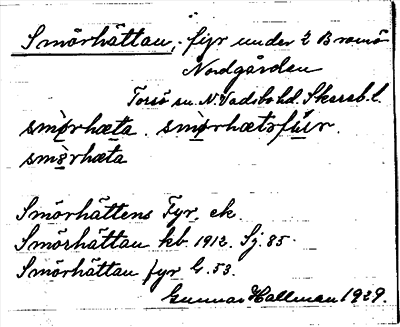 Smörhättan, fyr under 2 Bromö
Nordgården
Torsö sn. N. Vadsbo hd. Skarab. l.
smö̀rhæta. smö̀rhætsfùr.
smö̀rhæta
Smörhättens Fyr, ek.
Smörhättan kb 1912. Sj. 85.
Smörhättan fyr G. 53.
Gunnar Hallman 1929.